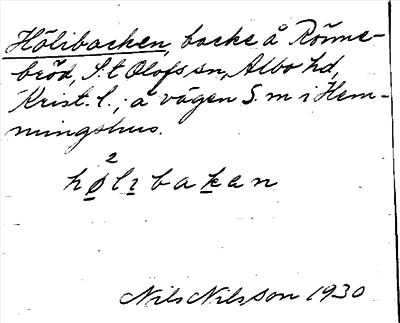 Hölibacken, backe å Rönne-
bröd, S:t Olofs sn, Albo hd,
Krist. l., å vägen S. m i Hem-
mingshus.
hø²lɪbakan
Nils Nilsson 1930